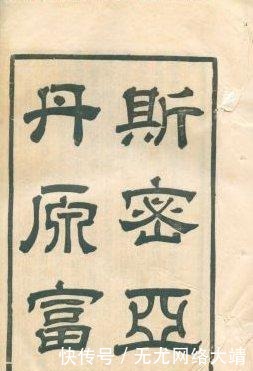 斯密亞
丹原富
快传号/无尤网络大靖